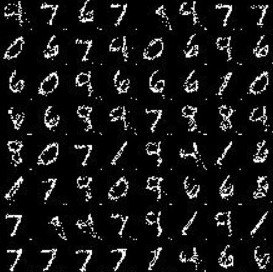 9 7 6 7 9 7 7
0 6 7 9 0 6 9 6
6 0 9 6 6 6 1 0
6 9 9 7 8 8 9
8 0 7 1 9 4 1 8
1 7 9 0 9 6 6 8
7 9 7 9 1 9 1
7 7 7 7 1 4 6 6